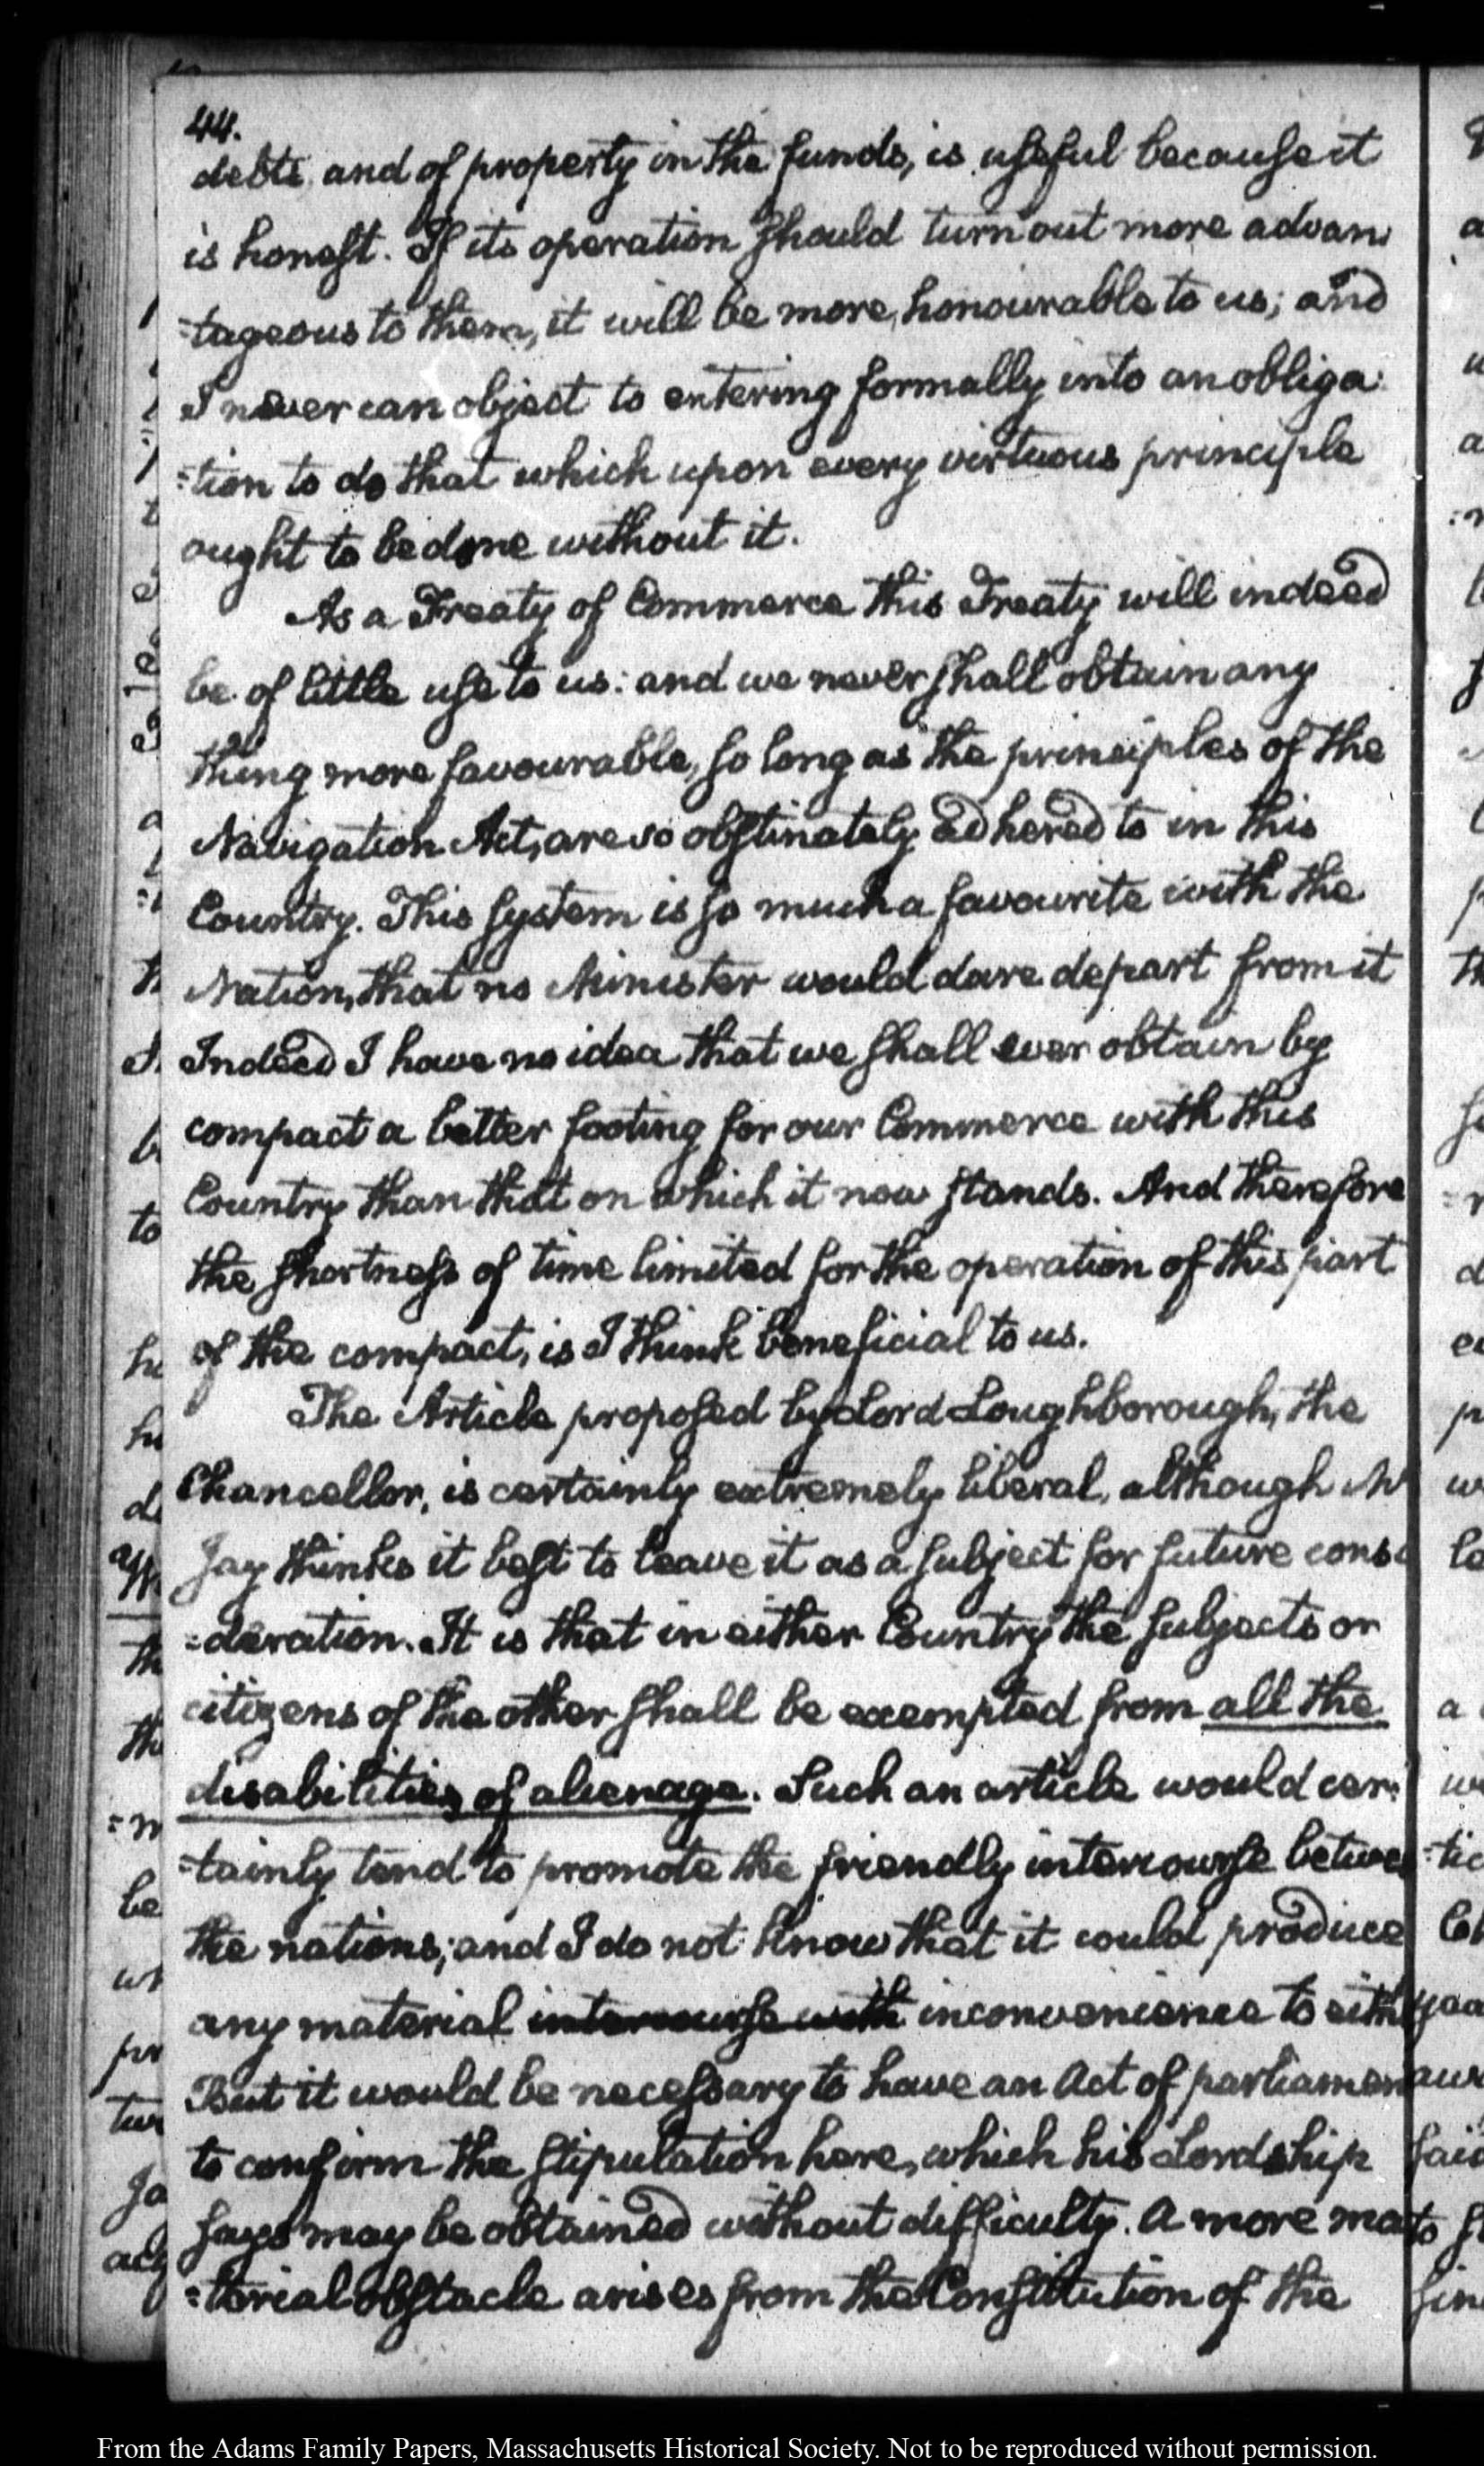 44.
debts and of property in the funds, is useful because it
is honest. If its operation should turn out more advan
-tageous to them, it will be more honourable to us; and
I never can object to entering formally into an obliga
-tion to do that which upon every virtuous principle
ought to be done without it.
As a Treaty of Commerce this Treaty will indeed
be of little use to us: and we never shall obtain any
thing more favourable, so long as the principles of the
Navigation Act, are so obstinately adhered to in this
Country. This system is so much a favourite with the
Nation, that no Minister would dare depart from it
Indeed I have no idea that we shall ever obtain by
compact a better footing for our Commerce with this
Country than that on which it now stands. And therefore
the shortness of time limited for the operation of this part
of the compact, is I think beneficial to us.
The Article proposed by Lord Loughborough, the
Chancellor, is certainly extremely liberal, although M
Jay thinks it best to leave it as a subject for future consi
-deration. It is that in either Country the subjects or
citizens of the other shall be exempted from all the
disabilities of alienage. Such an article would cer:
-tainly tend to promote the friendly intercourse betwee
the nations; and I do not know that it could produce
any material intercourse with inconvenience to eith
But it would be necessary to have an Act of parliamen
to confirm the stipulation here, which his Lordship
says may be obtained without difficulty. A more ma
-terial obstacle arises from the Constitution of the
From the Adams Family Papers, Massachusetts Historical Society. Not to be reproduced without permission.